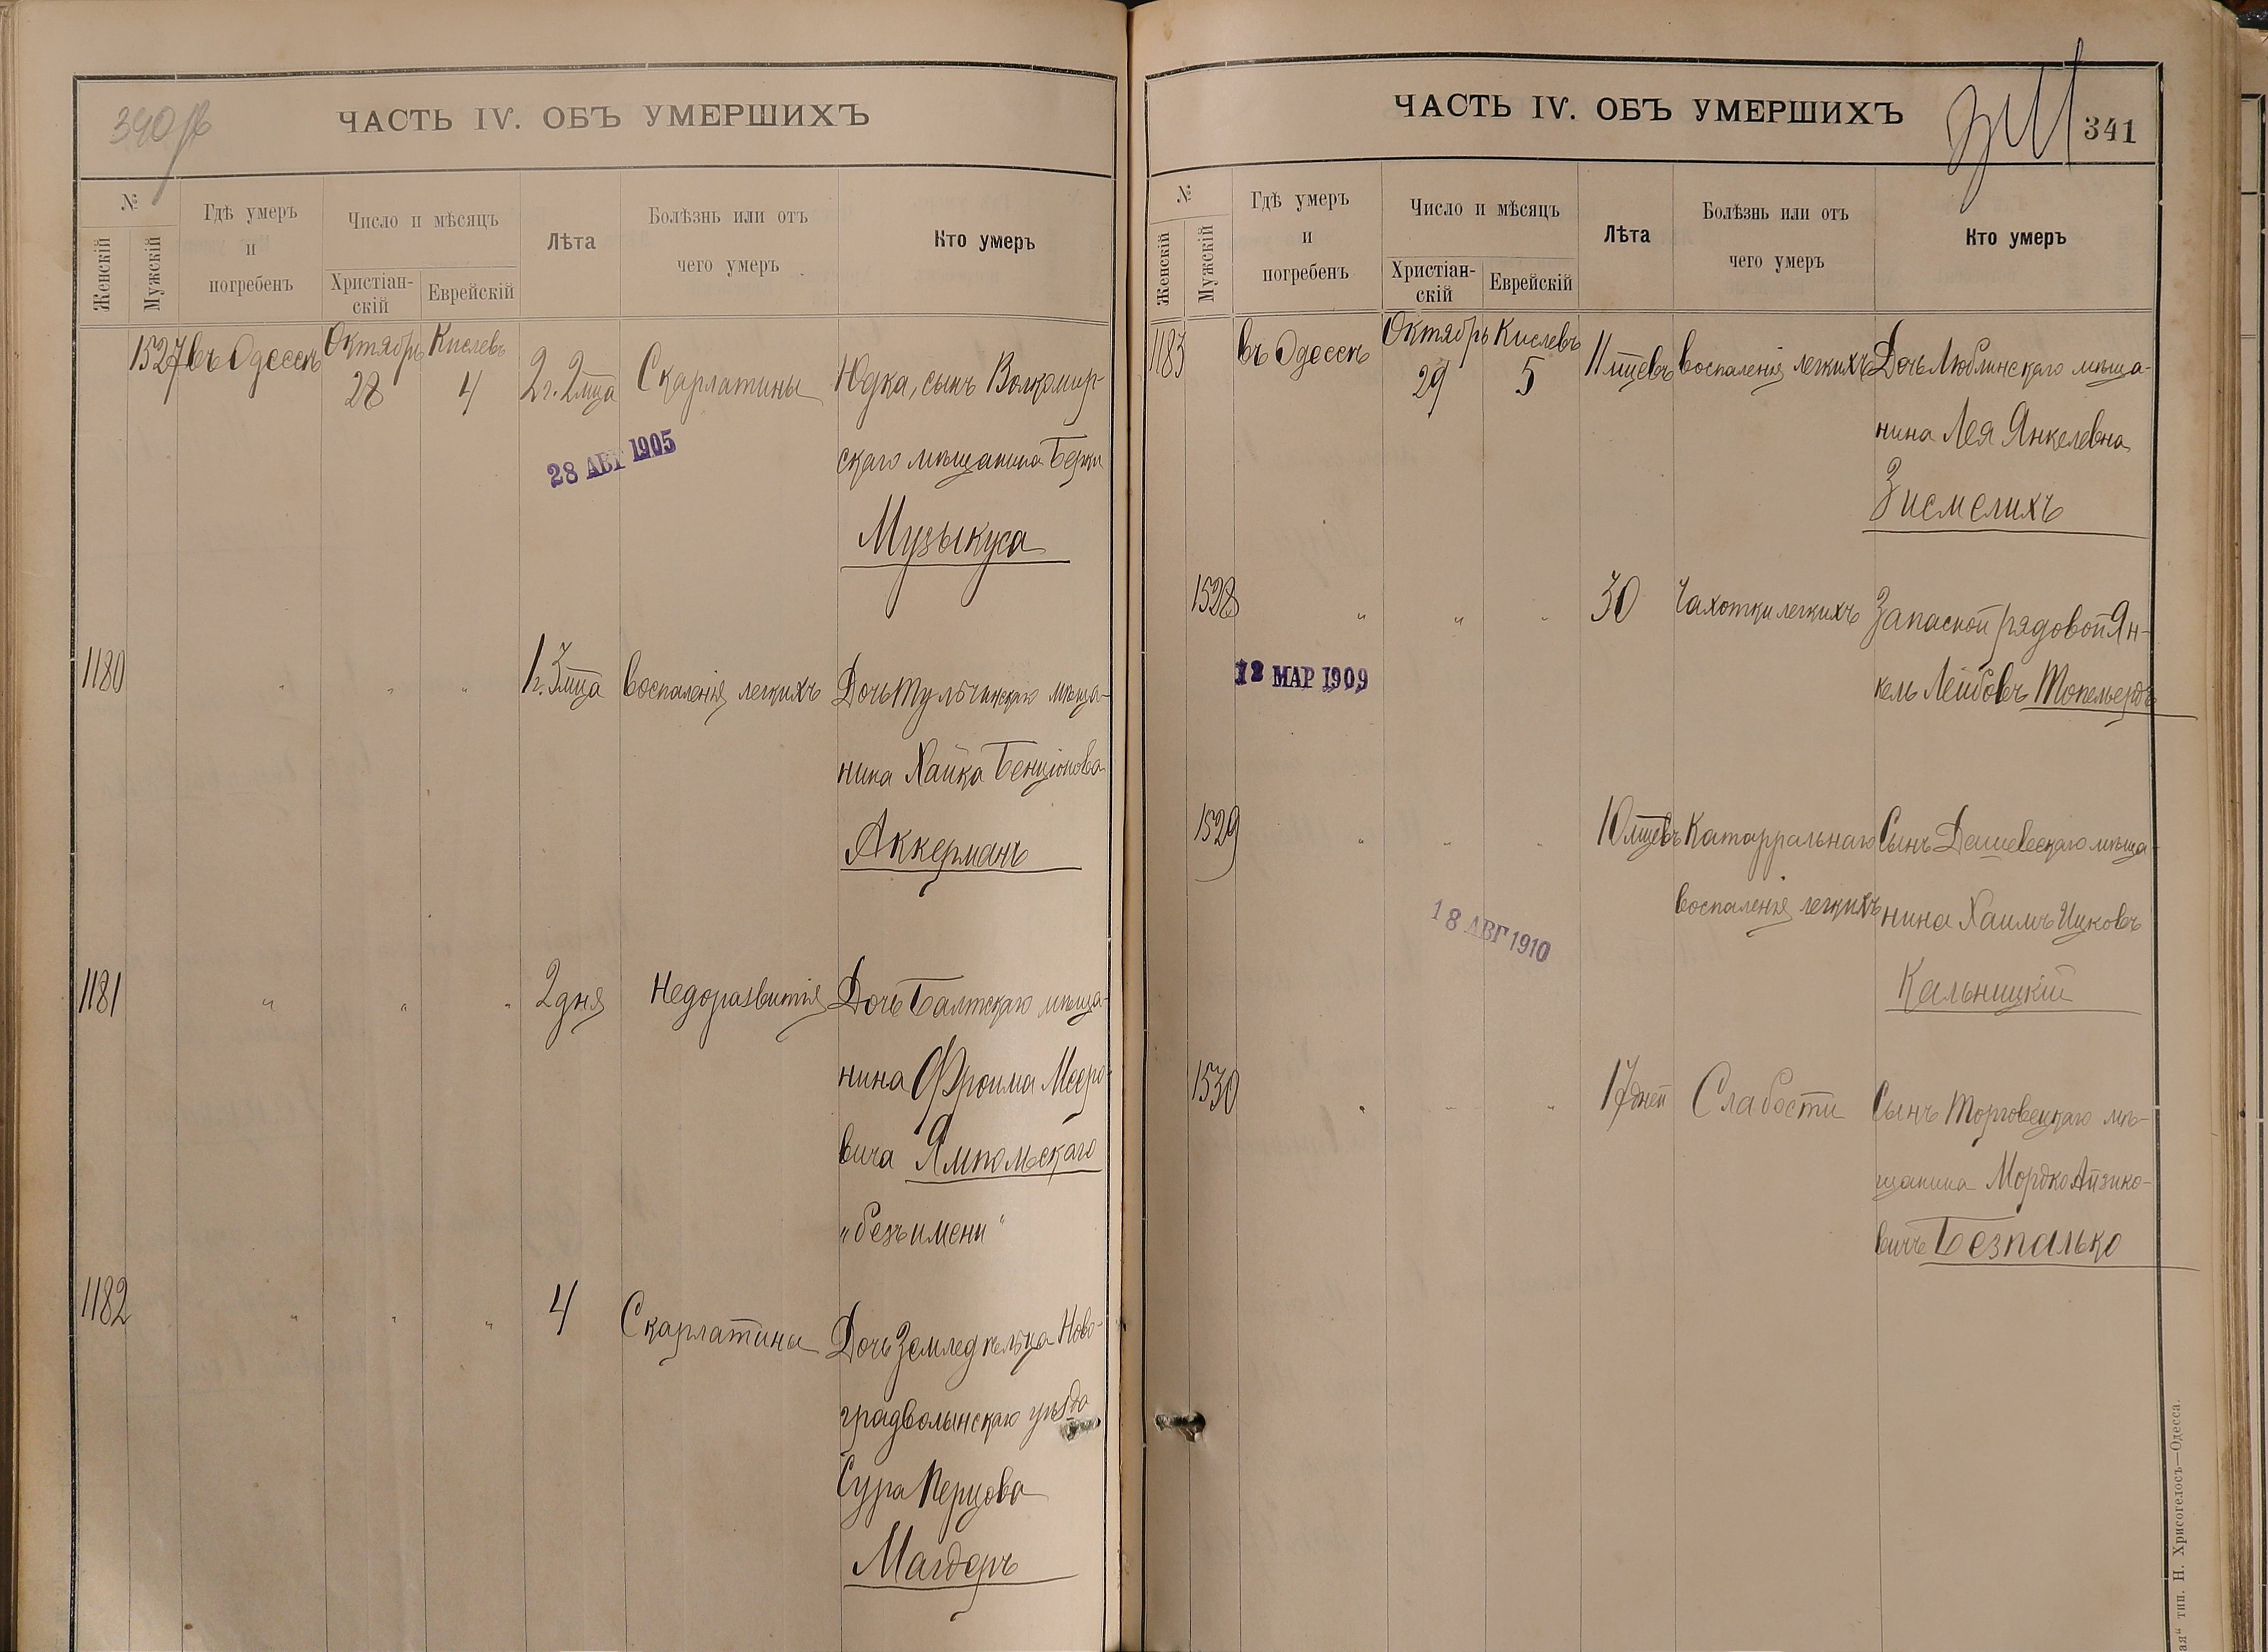 340 об
ЧАСТЬ IV. ОБЪ УМЕРШИХЪ
№
Женскій
Мужскій
Гдѣ умеръ
и
погребенъ
Число и мѣсяцъ
Христіан-
скій
Еврейскій
Лѣта
Болѣзнь или отъ
чего умеръ
Кто умеръ
1527 въ Одессѣ Октябрь 28 Кислевъ 4 2 г. 2 мца Скарлатины Юдка, сынъ Волкомир-
скаго мѣщанина Берки
Музыкуса
28 АВГ 1905
1180 " " " 1 г. 3 мца Воспаленія легкихъ Дочь Тульчинскаго мѣща-
нина Хайка Бенціонова
Аккерманъ
1181 " " " 2 дня Недоразвитія Дочь Балтскаго мѣща-
нина Фроима Мееро-
вича Ямпольскаго
„безъ имени"
1182 " " " 4 Скарлатины Дочь Земледѣльца Ново-
градволынскаго уѣзда
Сура Перцова
Магдеръ
ЧАСТЬ IV. ОБЪ УМЕРШИХЪ
341
341
№
Женскій
Мужскій
Гдѣ умеръ
и
погребенъ
Число и мѣсяцъ
Христіан-
скій
Еврейскій
Лѣта
Болѣзнь или отъ
чего умеръ
Кто умеръ
1183 въ Одессѣ Октябрь 29 Кислевъ 5 11 мцевъ Воспаленія легкихъ Дочь Люблинскаго мѣща-
нина Лея Янкелевна
Зисмелихъ
1528 " " " 30 Чахотки легкихъ Запасной рядовой Ян-
кель Лейбовъ
12 МАР 1909
1529 " " " 10 мцевъ Катарральнаго Сынъ Дашевскаго мѣща-
воспаленія легкихъ нина Хаимъ Ицковъ
Кальницкій
18 АВГ 1910
1530 " " " 17 дней Слабости Сынъ Торговецкаго мѣ-
щанина Мордко Айзико-
вичъ Безпалько
тип. Н. Хрисогелосъ—Одесса.